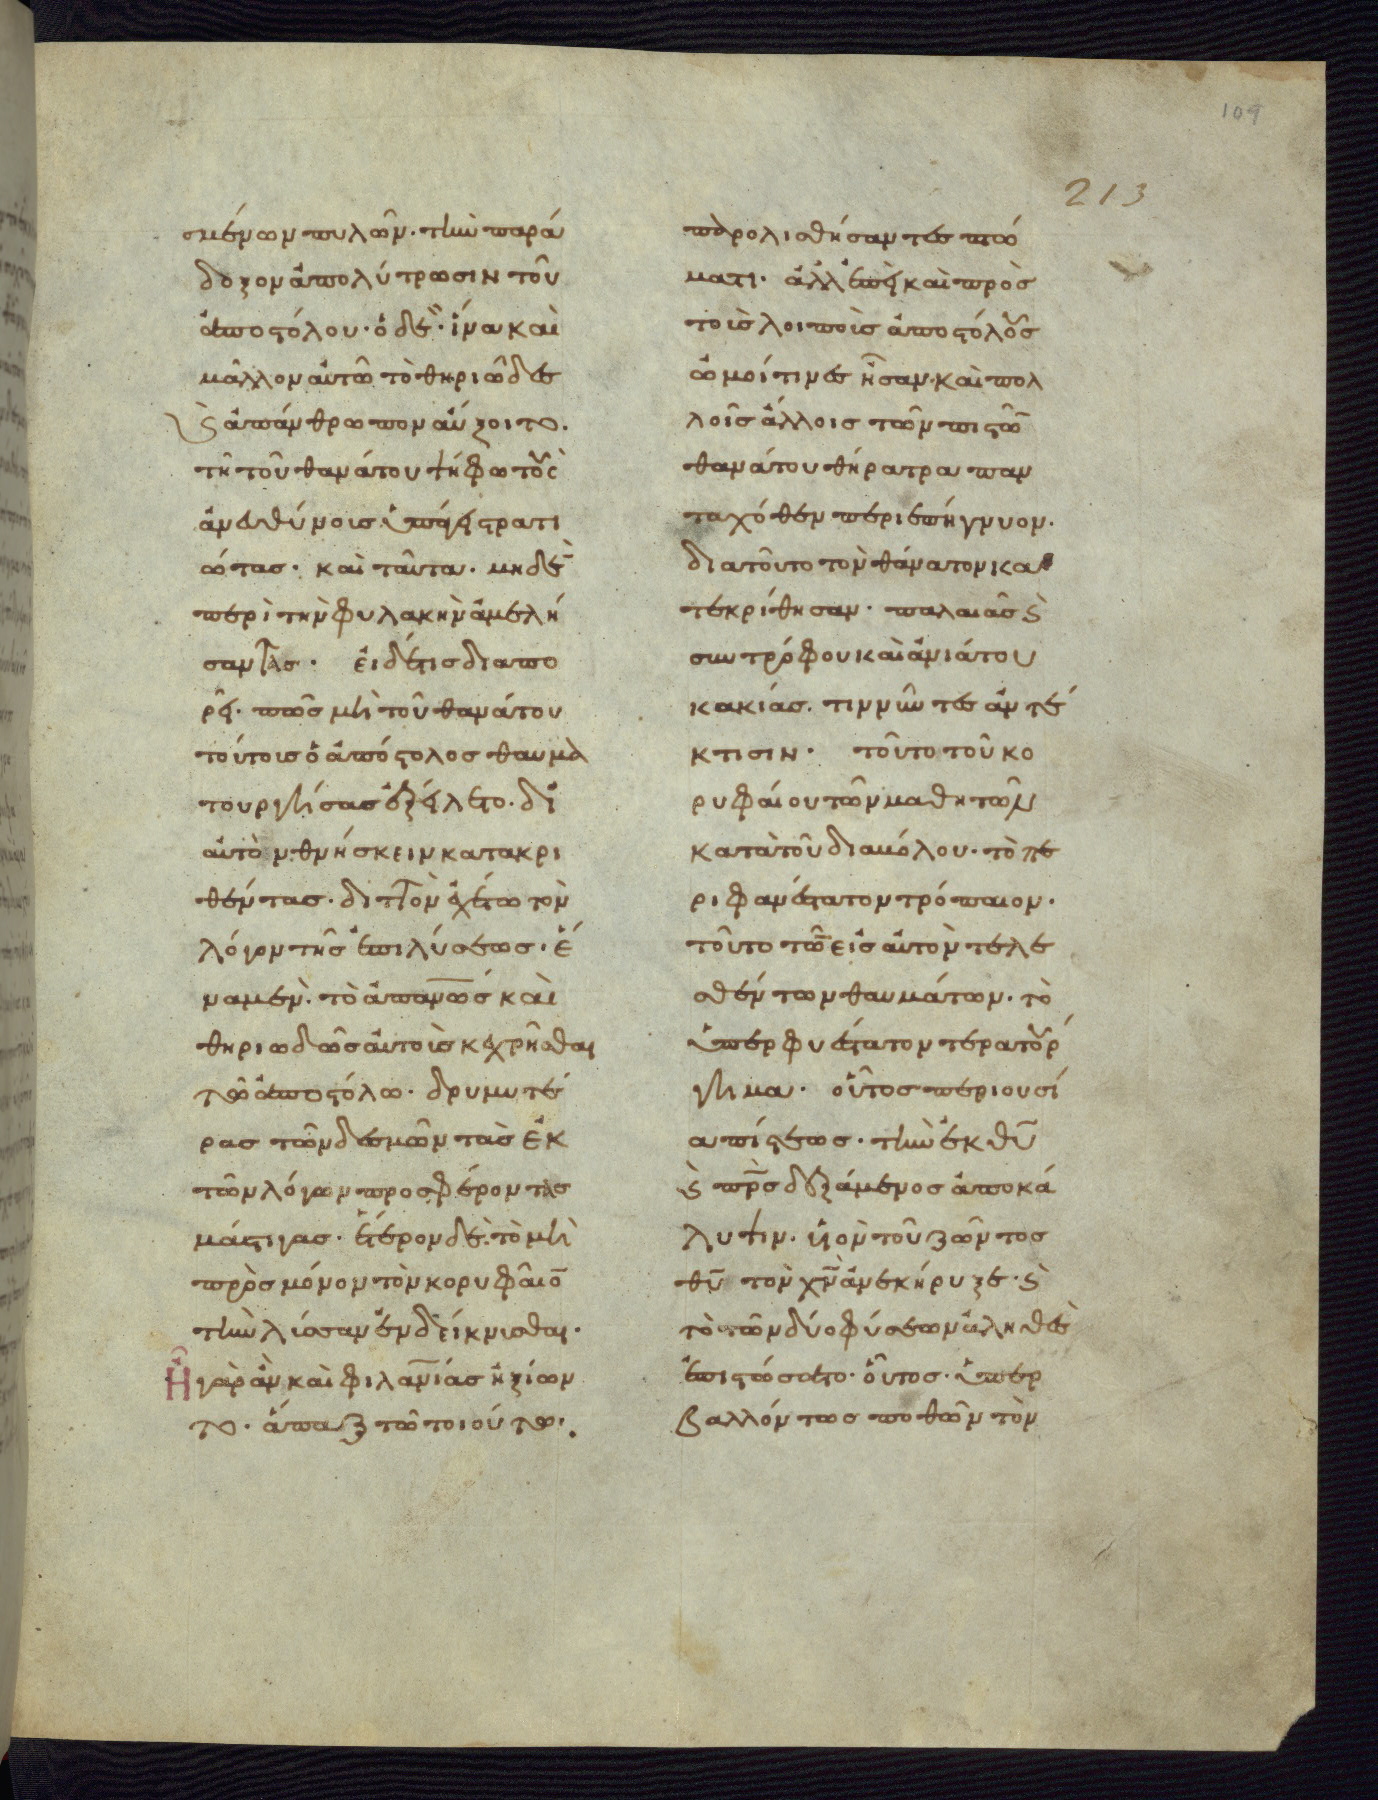 109
213
σμένων πυλῶν· τὴν παρά
δοξον ἀπολύτρωσιν τοῦ
ἀποστόλου· ὁ δὲ· ἵνα καὶ
μᾶλλον αὐτῶ τὸ θηριῶδες
ϗ ἀπάνθρωπον αὔξοιτο·
τῆ τοῦ θανάτου ψήφω τοὺς
ἀνευθύνοις ὑπάγει στρατι
ώτας· καὶ ταῦτα· μὴ δὲ
περὶ τὴν φυλακὴν ἀμελή
σαντας· εἰ δέ τις διαπο
ρεῖ· πῶς μὴ τοῦ θανάτου
τούτοις ὁ ἀπόστολος θαυμα
τουργήσας ἐξείλετο· δι'
αὐτὸν θνήσκειν κατακρι
θέντας· διττὸν ἐχέτω τὸν
λόγον τῆς ἐπιλύσεως· ἕ
να μὲν· τὸ ἀπανως καὶ
θηριωδῶς αὐτοῖς κεχρῆσθαι
τῶ ἀποστόλω· δρυμυτέ
ρας τῶν δεσμῶν τὰς ἐκ
τῶν λόγων προσφέροντας
μάστιγας· ἕτερον δὲ· τὸ μὴ
πρὸς μόνον τὸν κορυφαῖο
τὴν λύσσαν ἐνδείκνυσθαι·
Ἦ γὰρ ἂν καὶ φιλανίας ἠξίων
το· ἅπαξ τῶ τοιούτω·
παρολισθήσαντες πτώ
ματι· ἀλλ' ἐπεὶ καὶ πρὸς
τοῖς λοιποῖς ἀποστόλοις
ὠμοί τινες ἦσαν· καὶ πολ
λοῖς ἄλλοις τῶν πιστῶ
θανάτου θήρατρα παν
ταχόθεν περιεπήγνυον·
διατοῦτο τὸν θάνατον κα
τεκρίθησαν· παλαιᾶς ϗ
συντρόφου καὶ ἀνιάτου
κακίας· τιννῦντες ἀντέ
κτισιν· τοῦτο τοῦ κο
ρυφαίου τῶν μαθητῶν
κατὰ τοῦ διαυόλου· τὸ πε
ριφανέστατον τρόπαιον·
τοῦτο τῶ εἰς αὐτὸν τελε
σθέντων θαυμάτων· τὸ
ὑπερφυέστατον τερατούρ
γημα· οὗτος περιουσί
α πίστεως· τὴν ἐκ θυ
ϗ πρς δεξάμενος ἀποκά
λυψιν· υἱὸν τοῦ ζῶντος
θυ τὸν χν ἀνεκήρυξε· ϗ
τὸ τῶν δύο φύσεων ἀληθὲς
ἐπιστώσατο· οὗτος· ὑπερ
βαλλόντως ποθῶν τὸν